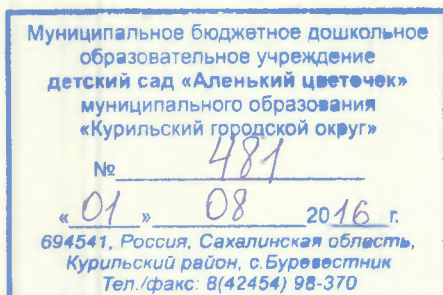 Муниципальное бюджетное дошкольное
образовательное учреждение
детский сад «Аленький цветочек»
муниципального образования
«Курильский городской округ»
№ 481
«01» 08 2016 г.
694541, Россия, Сахалинская область,
Курильский район, с.Буревестник
Тел./факс: 8(42454) 98-370